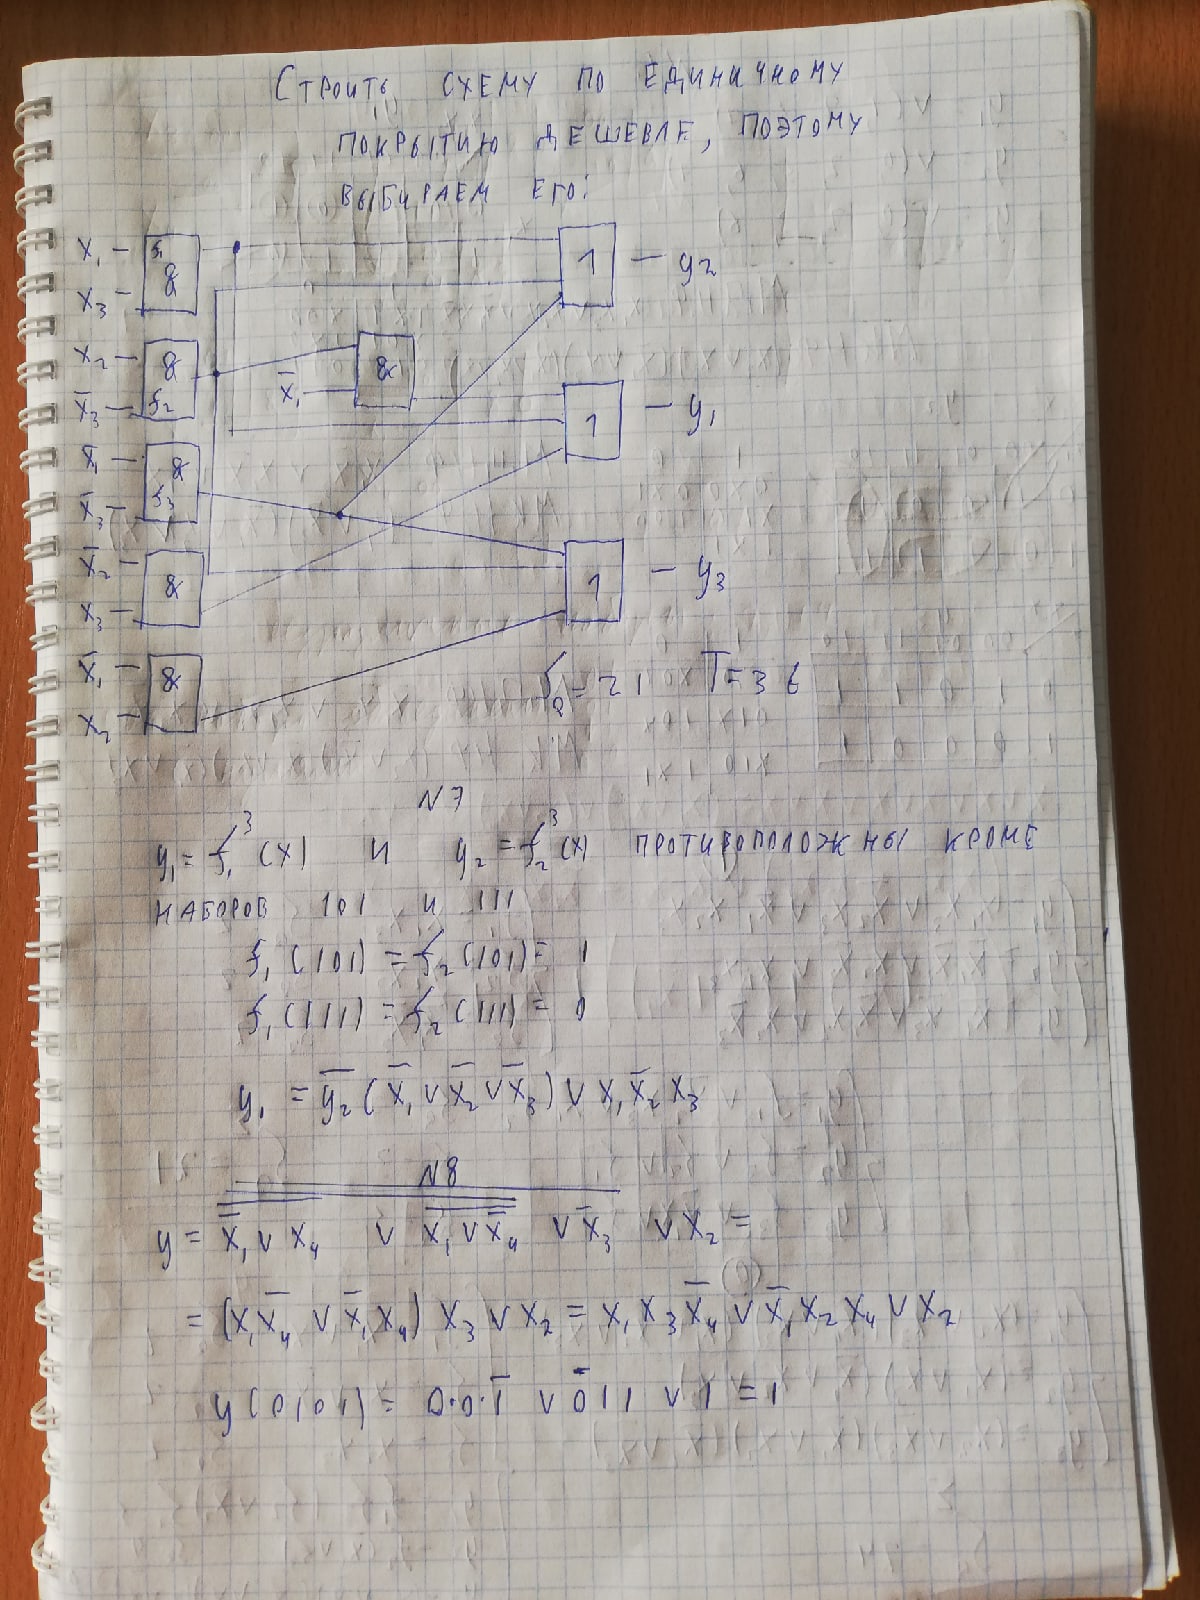 Строить схему по единичному
покрытию дешевле, поэтому
выбираем его:
x₁ f₁ & 1 y₂
x₃
x₂ & & 
x̄₃ f₂ x̄₁ 1 y₁
x̄₁ &
x̄₃ f₃
x̄₂ & 1 y₃
x₃
x̄₁ &
x₂
S_Q = 21 T = 3τ
N7
y₁ = f₁³(x) и y₂ = f₂³(x) противоположны кроме
наборов 101 и 111
f₁(101) = f₂(101) = 1
f₁(111) = f₂(111) = 0
y₁ = ȳ₂(x̄₁ ∨ x̄₂ ∨ x̄₃) ∨ x₁x̄₂x₃
N8
y = x̄₁ ∨ x₄ ∨ x₁ ∨ x̄₄ ∨ x̄₃ ∨ x₂ =
= (x₁x̄₄ ∨ x̄₁x₄) x₃ ∨ x₂ = x₁x₃x̄₄ ∨ x̄₁x₂x₄ ∨ x₂
y(0101) = 0·0·1̄ ∨ 0̄11 ∨ 1 = 1